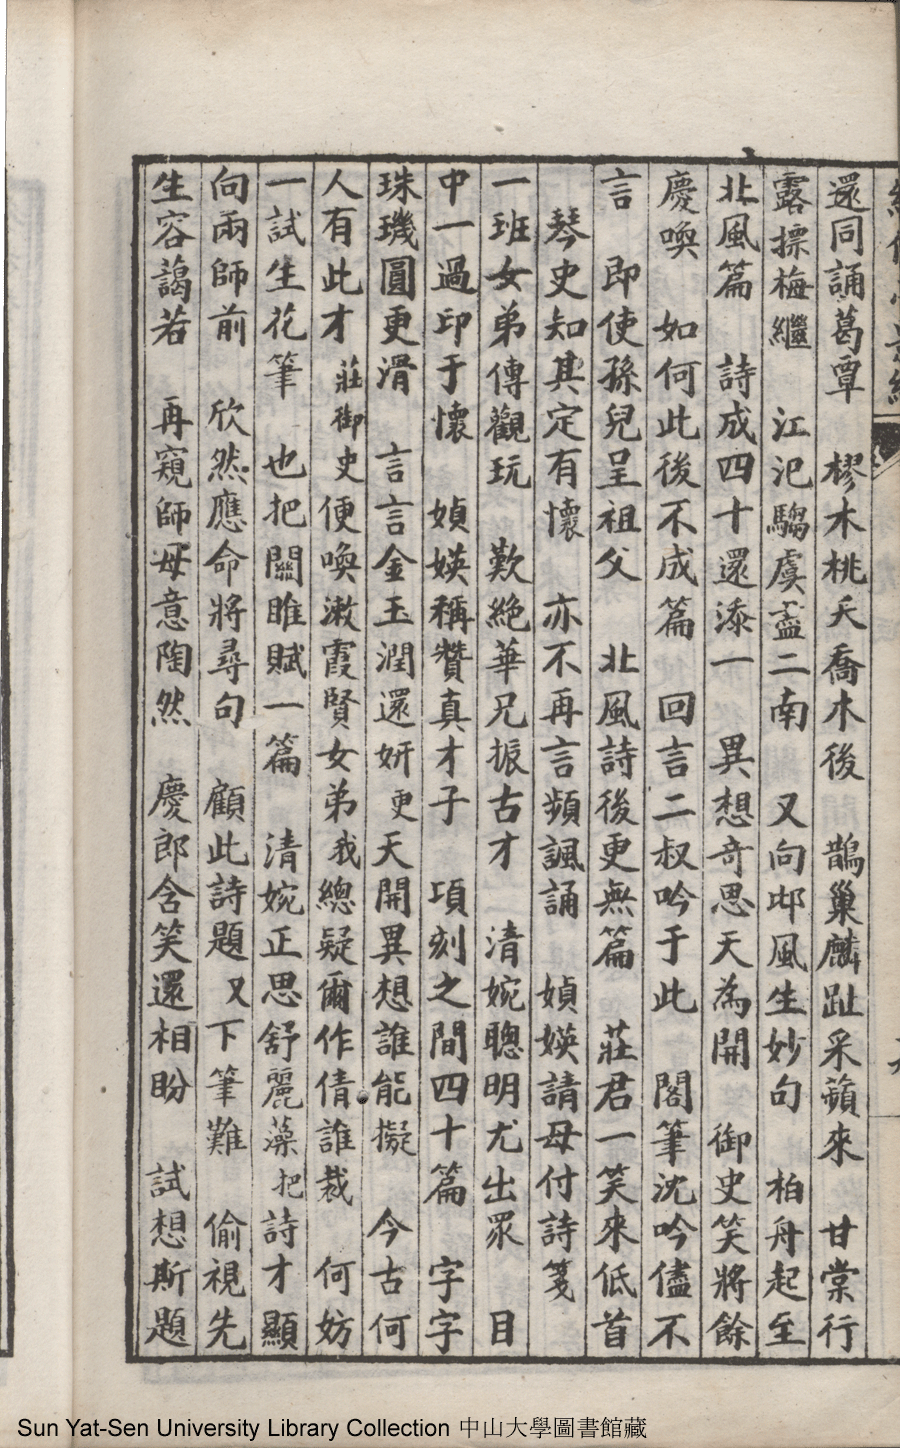 還同誦葛覃　樛木桃夭喬木後　鵲巢麟趾采蘋來　甘棠行
露摽梅繼　江汜騶虞盡二南　又向邶風生妙句　柏舟起至
北風篇　詩成四十還添一　異想奇思天為開　御史笑將餘
慶喚　如何此後不成篇　回言二叔吟于此　閣筆沈吟儘不
言　即使孫兒呈祖父　北風詩後更無篇　莊君一笑來低首
琴史知其定有懷　亦不再言頻諷誦　媜媖請母付詩箋
一班女弟傳觀玩　歎絕華兄振古才　清婉聰明尤出眾　目
中一過印于懷　媜媖稱贊真才子　項刻之間四十篇　字字
珠璣圓更滑　言言金玉潤還妍　更天開異想誰能擬　今古何
人有此才　莊御史便喚漱霞賢女弟　我總疑爾作倩誰裁　何妨
一試生花筆　也把關雎賦一篇　清婉正思舒麗藻　把詩才顯
向兩師前　欣然應命將尋句　顧此詩題又下筆難　偷視先
生容藹若　再窺師母意陶然　慶郎含笑還相盼　試想斯題
Sun Yat-Sen University Library Collection 中山大學圖書館藏